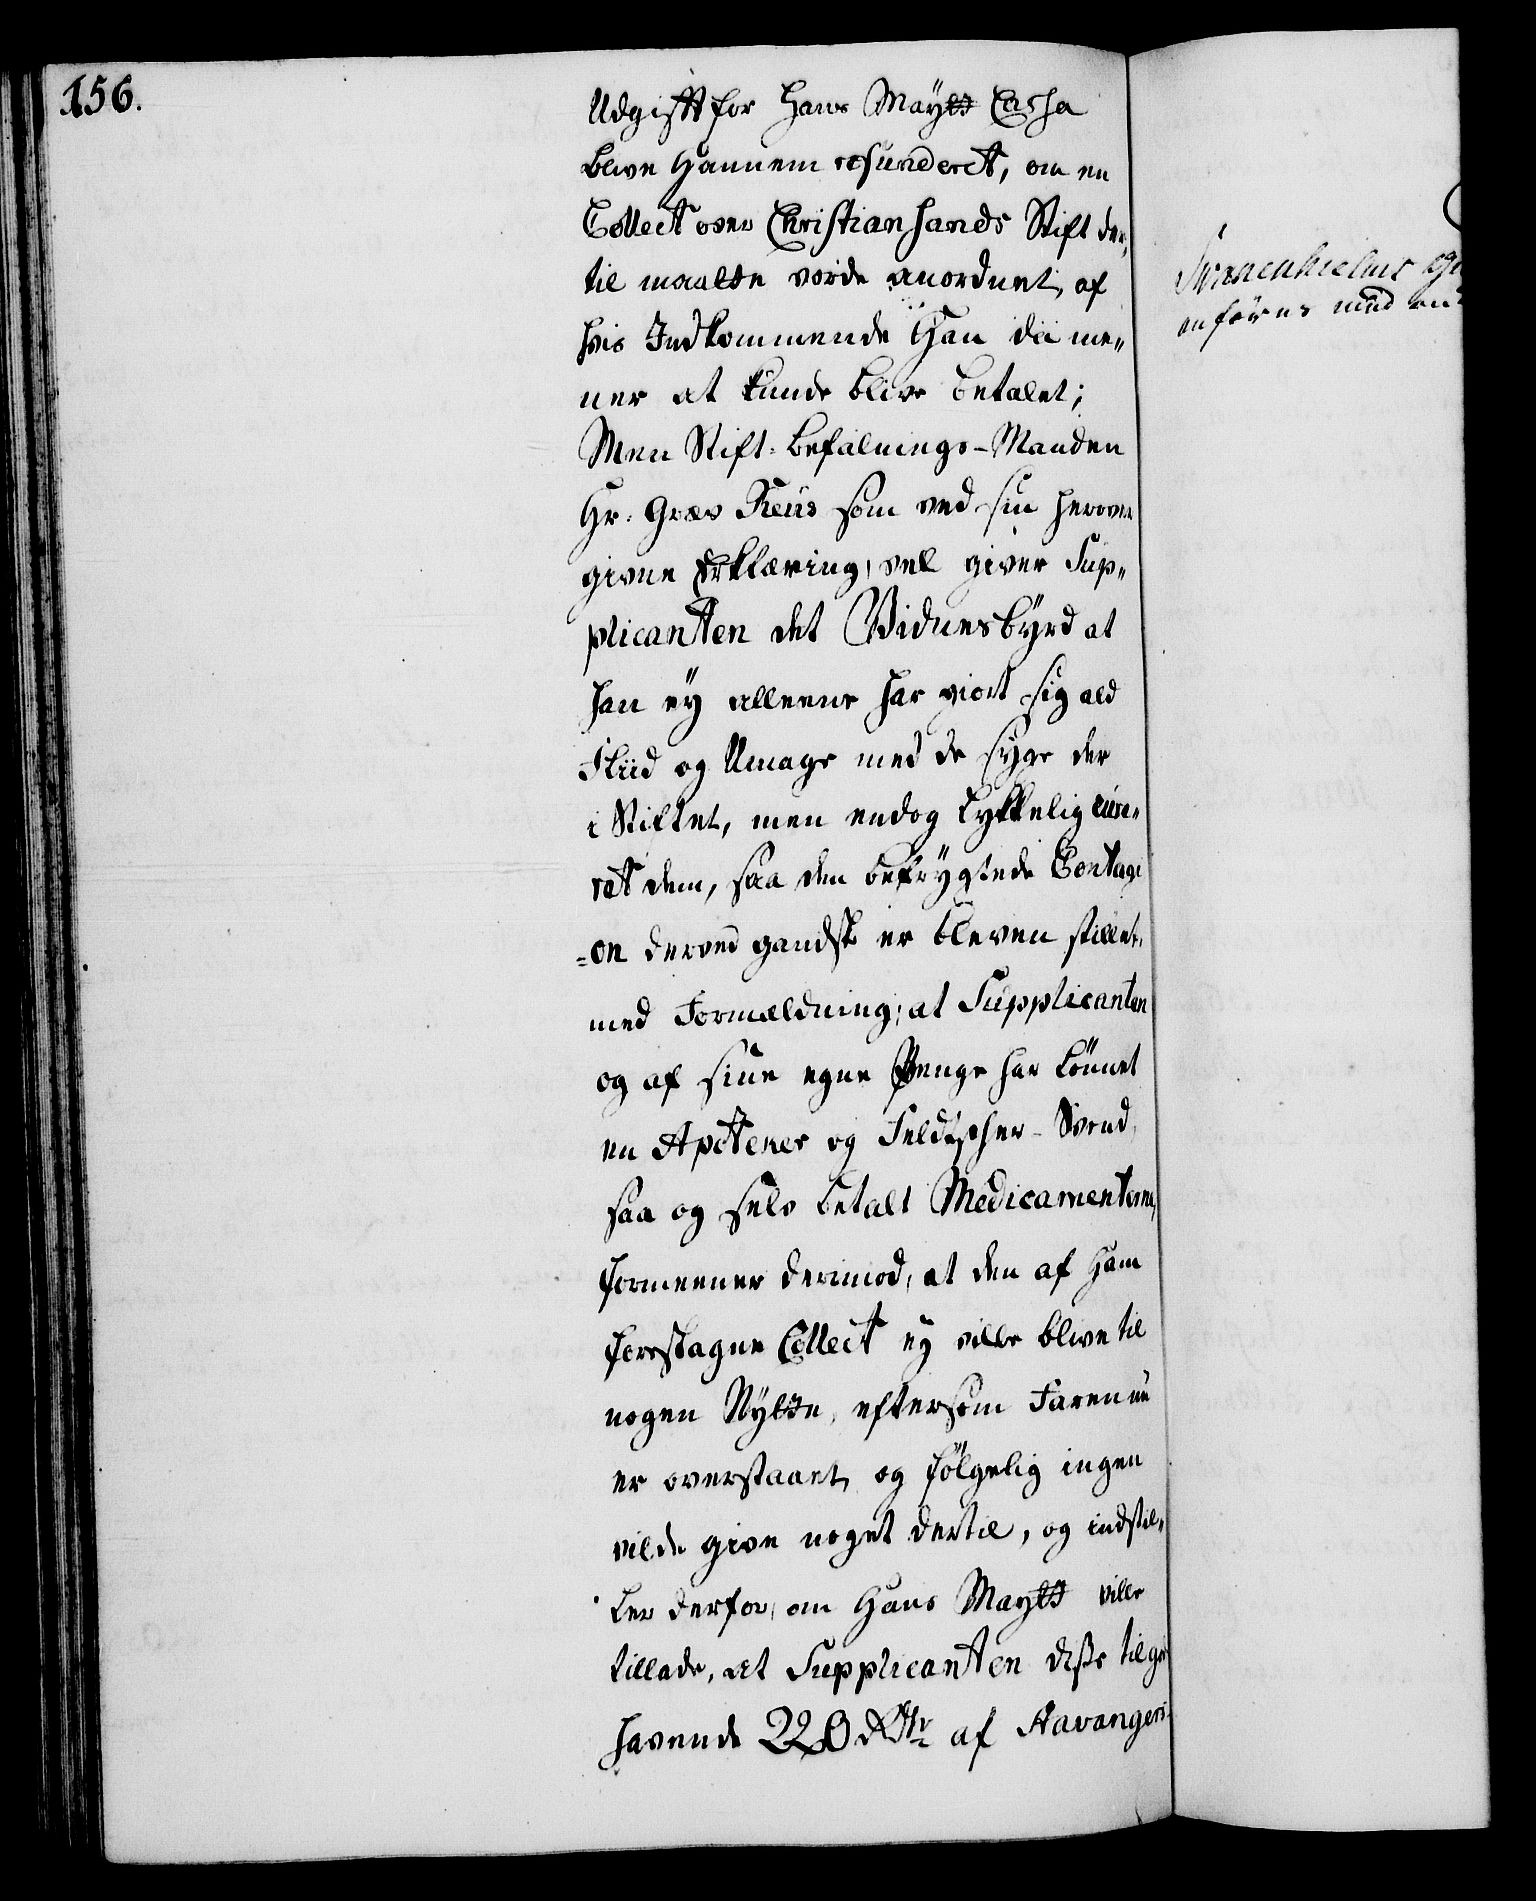 156.
Udgift for Hans Maytt Cassa
blive hannem refunderet, om en
Collect over Christiansands Stift der„
til maatte vorde anordnet, af
hvis Indkommende Han da me„
ner at kunde blive betalet;
Men Stift-befalnings-Manden
Hr: Grev Reus som ved sin herover
givne Erklæring, vel giver Sup„
plicanten det Vidnesbyrd at
han ey alleene har giort sig ald
Fliid og Umage med de syge der
i Stiftet, men endog lykkelig cure„
ret dem, saa den befrygtede Contagi
=on derved gandske er bleven stillet,
med Formældning, at Supplicanten
og af sine egne Penge har lønnet
en Apoteker og Feldtscher-Svend,
saa og selv betalt Medicamenterne,
formeener derimod, at den af ham
foreslagne Collect ey ville blive til
nogen Nytte, eftersom Faren nu
er overstaaet, og følgelig ingen
vilde give noget dertil, og indstil„
ler derfor, om Hans Maytt ville
tillade, at Supplicanten disse tilgo
havende 220 Rdr af Stavangers
anføres med